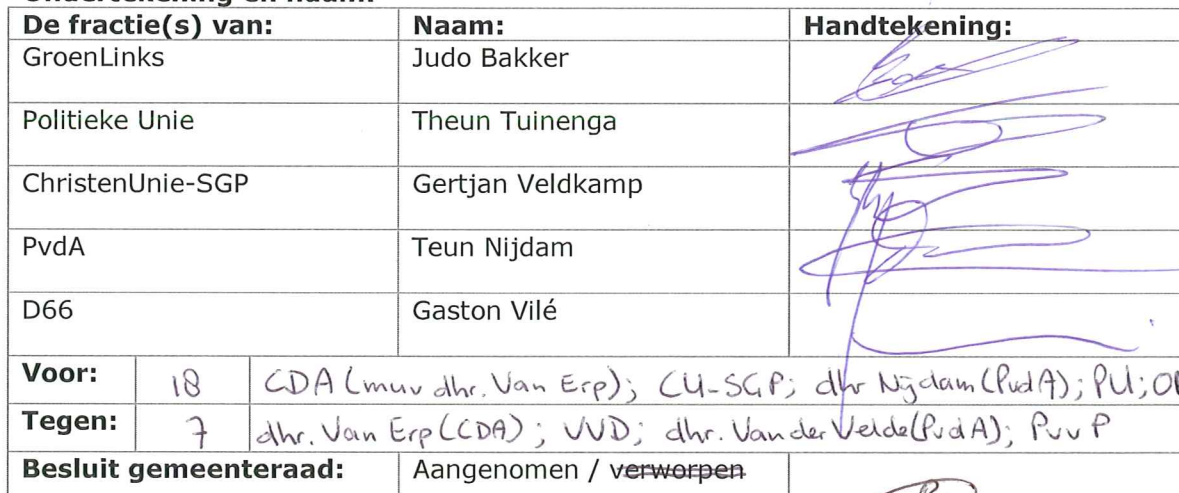 De fractie(s) van: Naam: Handtekening:
GroenLinks Judo Bakker
Politieke Unie Theun Tuinenga
ChristenUnie-SGP Gertjan Veldkamp
PvdA Teun Nijdam
D66 Gaston Vilé
Voor: 18 CDA (muv dhr. Van Erp); CU-SGP; dhr Nijdam (PvdA); PU;
Tegen: 7 dhr. Van Erp (CDA); VVD; dhr. Van der Velde (PvdA); PvvP
Besluit gemeenteraad: Aangenomen / verworpen